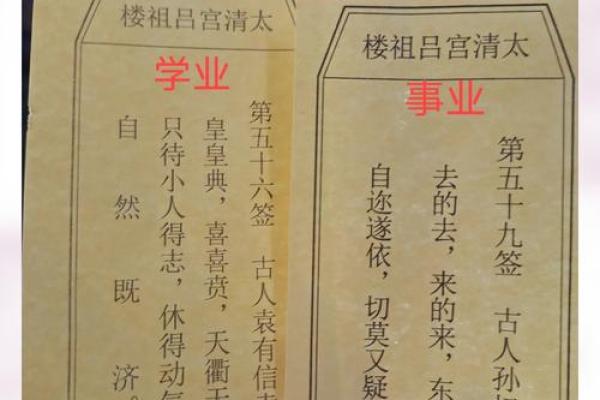 太清宫吕祖楼
学业
第五十六签 古人袁有信
皇皇典，喜喜贲，天衢
只待小人得志，休得动气
自然既济。
太清宫吕祖楼
事业
第五十九签 古人孙
去的去，来的来，东
自迩遂依，切莫又疑